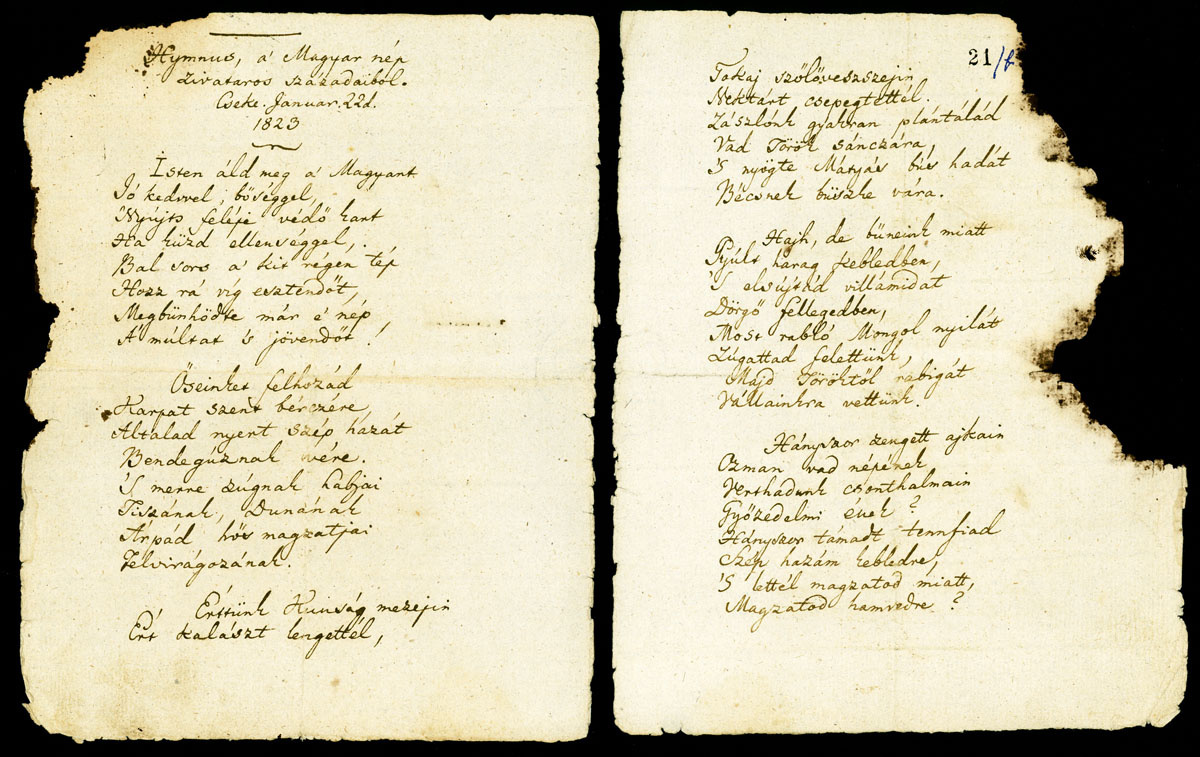 Hymnus, a' Magyar nép
Zivataros századaiból.
Cseke. Januar. 22d.
1823
Isten áld meg a' Magyart
Jó kedvvel, bőséggel,
Nyújts feléje védő kart
Ha küzd ellenséggel,
Bal sors a' kit régen tép
Hozz rá víg esztendőt,
Megbünhödte már e' nép
A' múltat 's jövendőt!
Őseinket felhozád
Kárpát szent bérczére,
Általad nyert szép hazát
Bendegúznak vére.
'S merre zúgnak habjai
Tiszának, Dunának
Árpád hős magzatjai
Felvirágozának.
Értünk Kunság mezejin
Ért kalászt lengettél,
21/b
Tokaj szőlővesszejin
Nektárt csepegtettél.
Zászlónk gyakran plántálád
Vad Török sánczára,
'S nyögte Mátyás bús hadát
Bécsnek büszke vára.
Hajh, de bűneink miatt
Gyúlt harag kebledben,
'S elsújtád villámidat
Dörgő fellegedben,
Most rabló Mongol nyilát
Zúgattad felettünk,
Majd Töröktől rabigát
Vállainkra vettünk.
Hányszor zengett ajkain
Ozman vad népének
Vert hadunk csonthalmain
Győzedelmi ének?
Hányszor támadt tennfiad
Szép hazám kebledre,
'S lettél magzatod miatt,
Magzatod hamvedre?